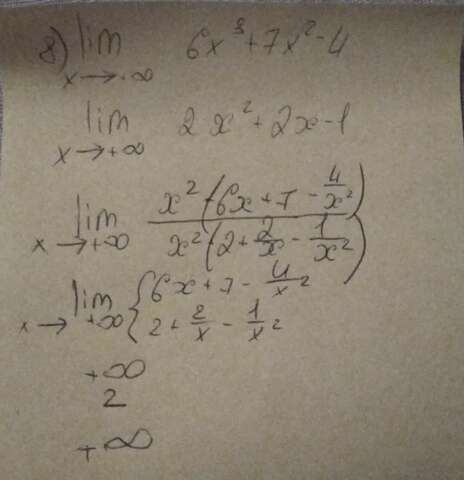 8) lim x→+∞ 6x³+7x²-4
lim x→+∞ 2x²+2x-1
lim x→+∞ x²(6x+7-4/x²)
x²(2+2/x-1/x²)
lim x→+∞ {6x+7-4/x²
2+2/x-1/x²
+∞
2
+∞